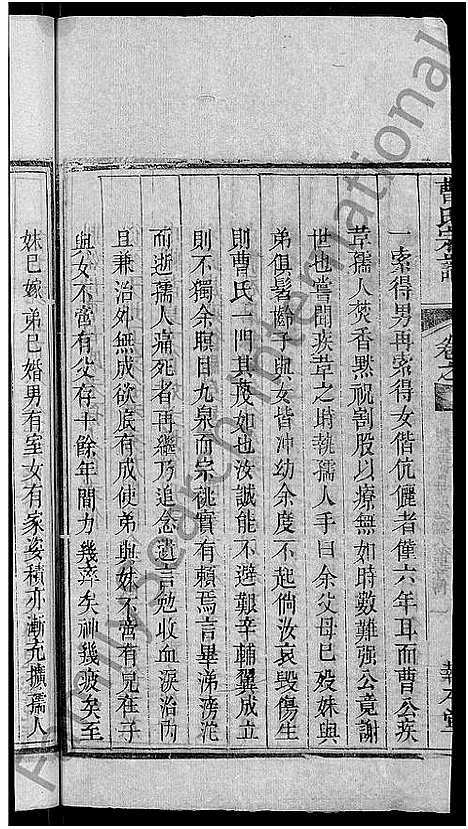 曹氏宗譜
卷之
一索得男再索得女偕伉儷者僅六年耳而曹公疾
草孺人焚香黙祝割股以療無如時數難强公竟謝
世也嘗聞疾草之時執孺人手曰余父母已殁妹與
弟俱髫齡子與女皆冲幼余度不起倘汝哀毀傷生
則曹氏一門其茂如也汝誠能不避艱辛輔翼成立
則不獨余瞑目九泉而宗祧實有賴焉言畢涕滂沱
而逝孺人痛死者再繼乃追念遺言勉收血淚治內
且兼治外無成欲底有成使弟與妹不啻有兄在子
與女不啻有父存十餘年間力幾瘁矣神幾疲矣至
妹已嫁弟已婚男有室女有家姿積亦漸充擴孺人
FamilySearch International